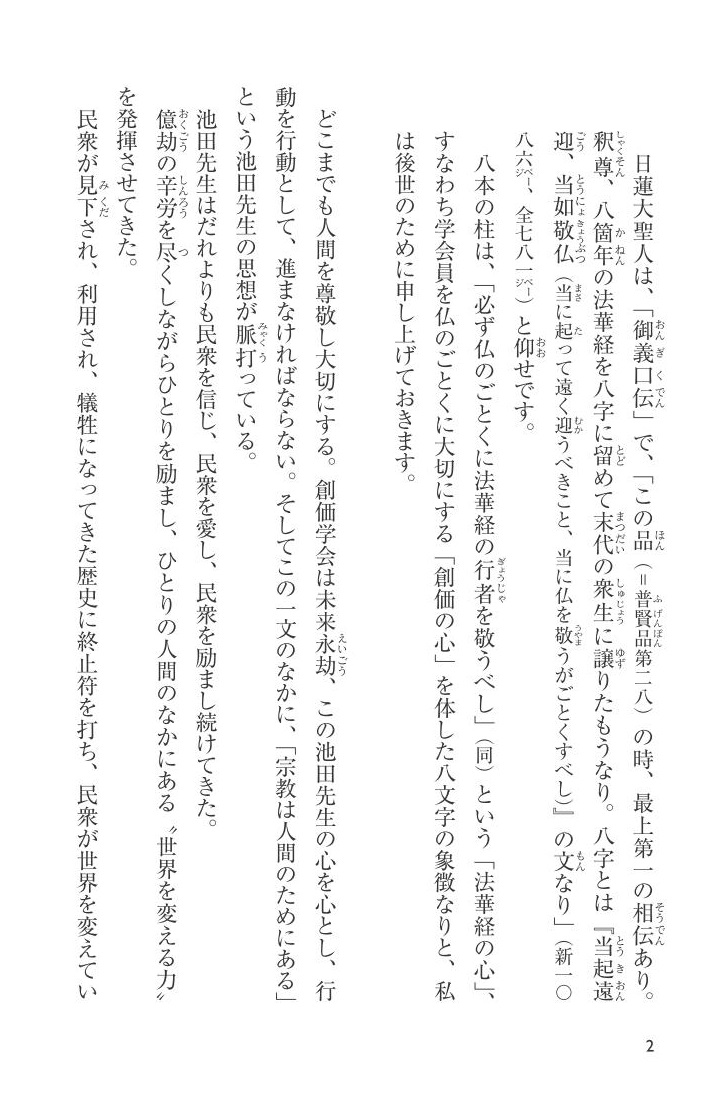 日蓮大聖人は、「御義口伝」で、「この品（＝普賢品第二八）の時、最上第一の相伝あり。
釈尊、八箇年の法華経を八字に留めて末代の衆生に譲りたもうなり。八字とは『当起遠
迎、当如敬仏（当に起って遠く迎うべきこと、当に仏を敬うがごとくすべし）』の文なり」（新一〇
八六㌻、全七八一㌻）と仰せです。
八本の柱は、「必ず仏のごとくに法華経の行者を敬うべし」（同）という「法華経の心」、
すなわち学会員を仏のごとくに大切にする「創価の心」を体した八文字の象徴なりと、私
は後世のために申し上げておきます。
どこまでも人間を尊敬し大切にする。創価学会は未来永劫、この池田先生の心を心とし、行
動を行動として、進まなければならない。そしてこの一文のなかに、「宗教は人間のためにある」
という池田先生の思想が脈打っている。
池田先生はだれよりも民衆を信じ、民衆を愛し、民衆を励まし続けてきた。
億劫の辛労を尽くしながらひとりを励まし、ひとりの人間のなかにある〝世界を変える力〟
を発揮させてきた。
民衆が見下され、利用され、犠牲になってきた歴史に終止符を打ち、民衆が世界を変えてい
2